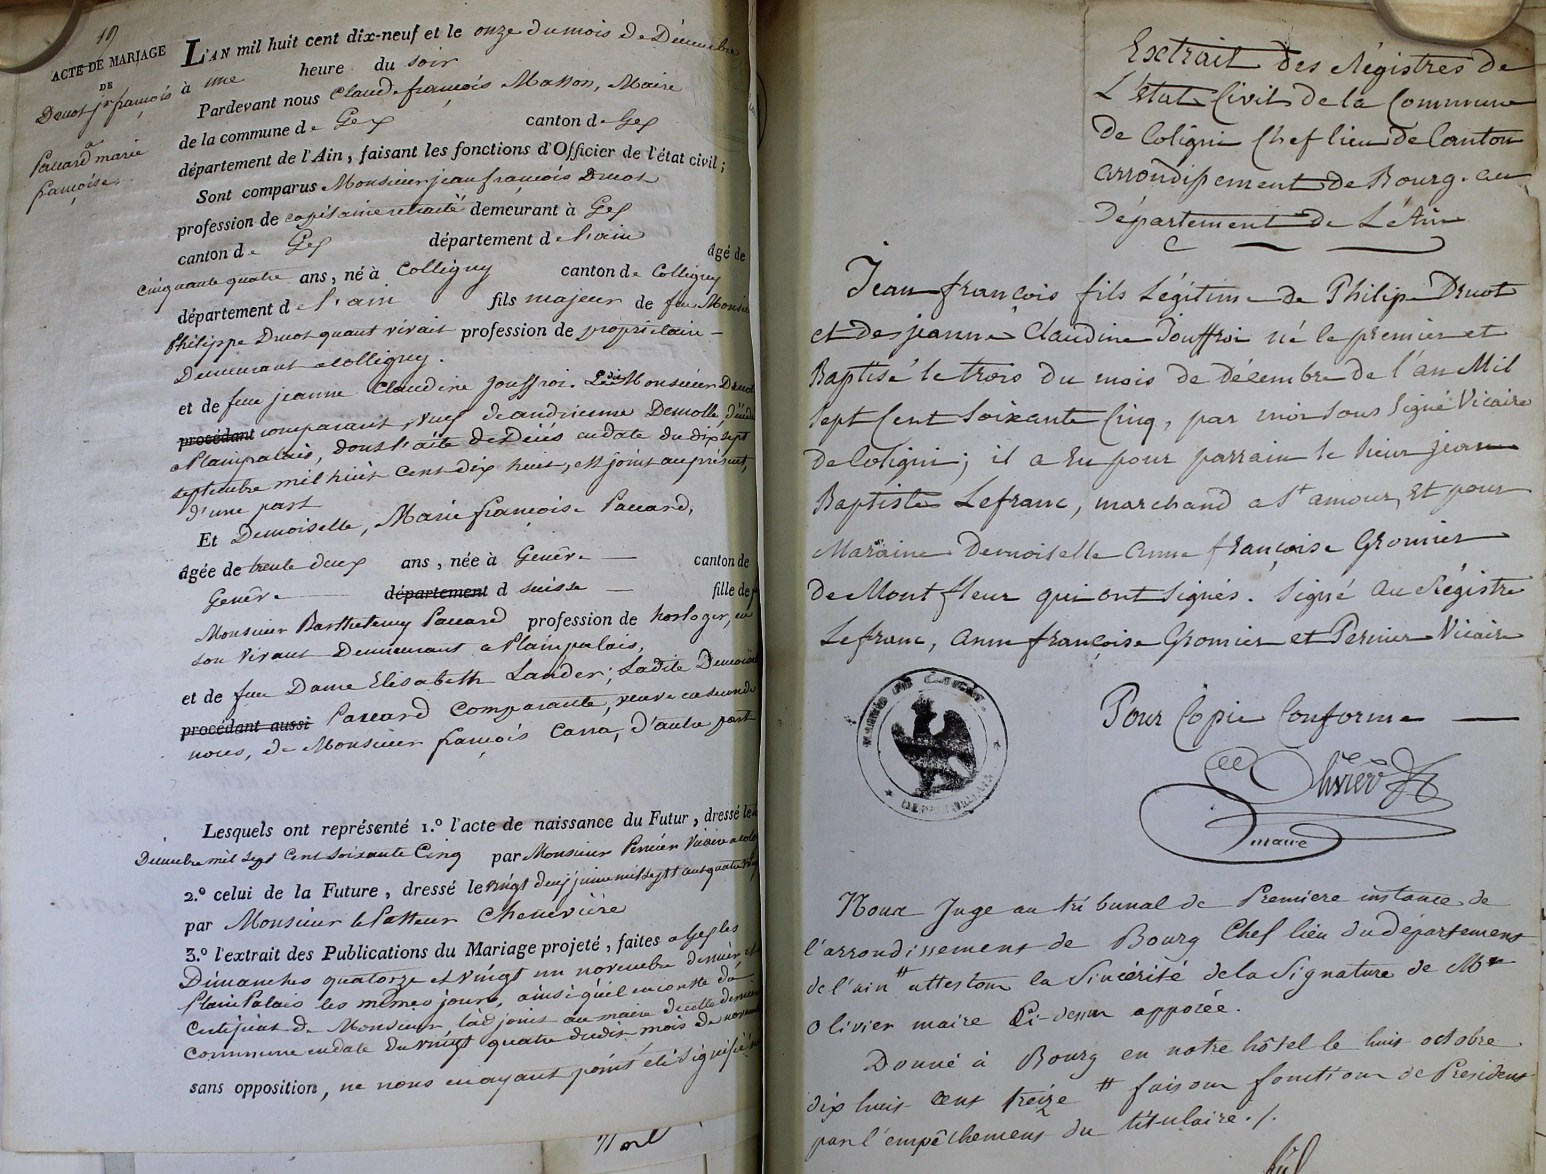 19
ACTE DE MARIAGE
DE
Druot jn françois
a
Paccard marie
françoise.
L'AN mil huit cent dix-neuf et le onze du mois de Décembre
à une heure du soir
Pardevant nous Claude françois Masson, Maire
de la commune de Gex canton de Gex
département de l'Ain, faisant les fonctions d'Officier de l'état civil;
Sont comparus Monsieur jean françois Druot
profession de capitaine retraité demeurant à Gex
canton de Gex département de l'ain âgé de
cinquante quatre ans, né à Colligny canton de Colligny
département de l'ain fils majeur de feu Monsieur
Philippe Druot quant vivait profession de propriétaire
Demeurant a Colligny.
et de feue jeanne Claudine Jouffroi. Ledit Monsieur Druot
procédant comparant, veuf de andrienne Demolle, décédée
a Plainpalais, dont l'acte de Décés en date du dix sept
septembre mil huit cent dix huit, est joint au présent,
d'une part
Et Demoiselle, Marie françoise Paccard,
âgée de trente deux ans, née à Genève canton de
Genève département d suisse fille de f
Monsieur Barthelemy Paccard profession de horloger, en
son vivant Demeurant a Plainpalais,
et de feue Dame Elisabeth Lander; Ladite Demoiselle
procédant aussi Paccard comparante, veuve en seconde
noces, de Monsieur françois Carra, d'autre part
Lesquels ont représenté 1.º l'acte de naissance du Futur, dressé le
Décembre mil sept Cent soixante Cinq par Monsieur Pernier Vicaire a
2.º celui de la Future, dressé le vingt deux juin mil sept cent quatre vingt
par Monsieur le Pasteur Chenevière
3.º l'extrait des Publications du Mariage projeté, faites a Gex les
Dimanches quatorze et vingt un novembre dernier, et
Plain Palais les mêmes jours, ainsi qu'il en conste du
Certificat de Monsieur, l'adjoint au maire de cette dernière
Commune en date du vingt quatre dudit mois de novembre
sans opposition, ne nous en ayant point été signifié
Extrait des Régistres de
L'état Civil de la Commune
de Coligni Chef lieu de Canton
arrondissement de Bourg. au
Département de L'Ain
Jean françois fils Légitime de Philipe Druot
et de jeanne Claudine Jouffroi né le premier et
Baptisé le trois du mois de décembre de l'an Mil
sept Cent Soixante Cinq, par moi sous signé Vicaire
de Coligni; il a Eu pour parrain le sieur jean
Baptiste Lefranc, marchand a St amour, Et pour
Maraine Demoiselle anne françoise Gromier
de Montfleur qui ont signés. Signé au Régistre
Lefranc, anne françoise Gromier et Pernier Vicaire
Pour Copie Conforme
Olivier
maire
Nous Juge au tribunal de Premiere instance de
l'arrondissement de Bourg Chef lieu du département
de l'ain # attestons la Sincérité de la Signature de Mr
Olivier maire Ci-dessus apposée.
Donné à Bourg en notre hôtel le huit octobre
dix huit cent treize # faisant fonction de Président
par l'empêchement du titulaire./.